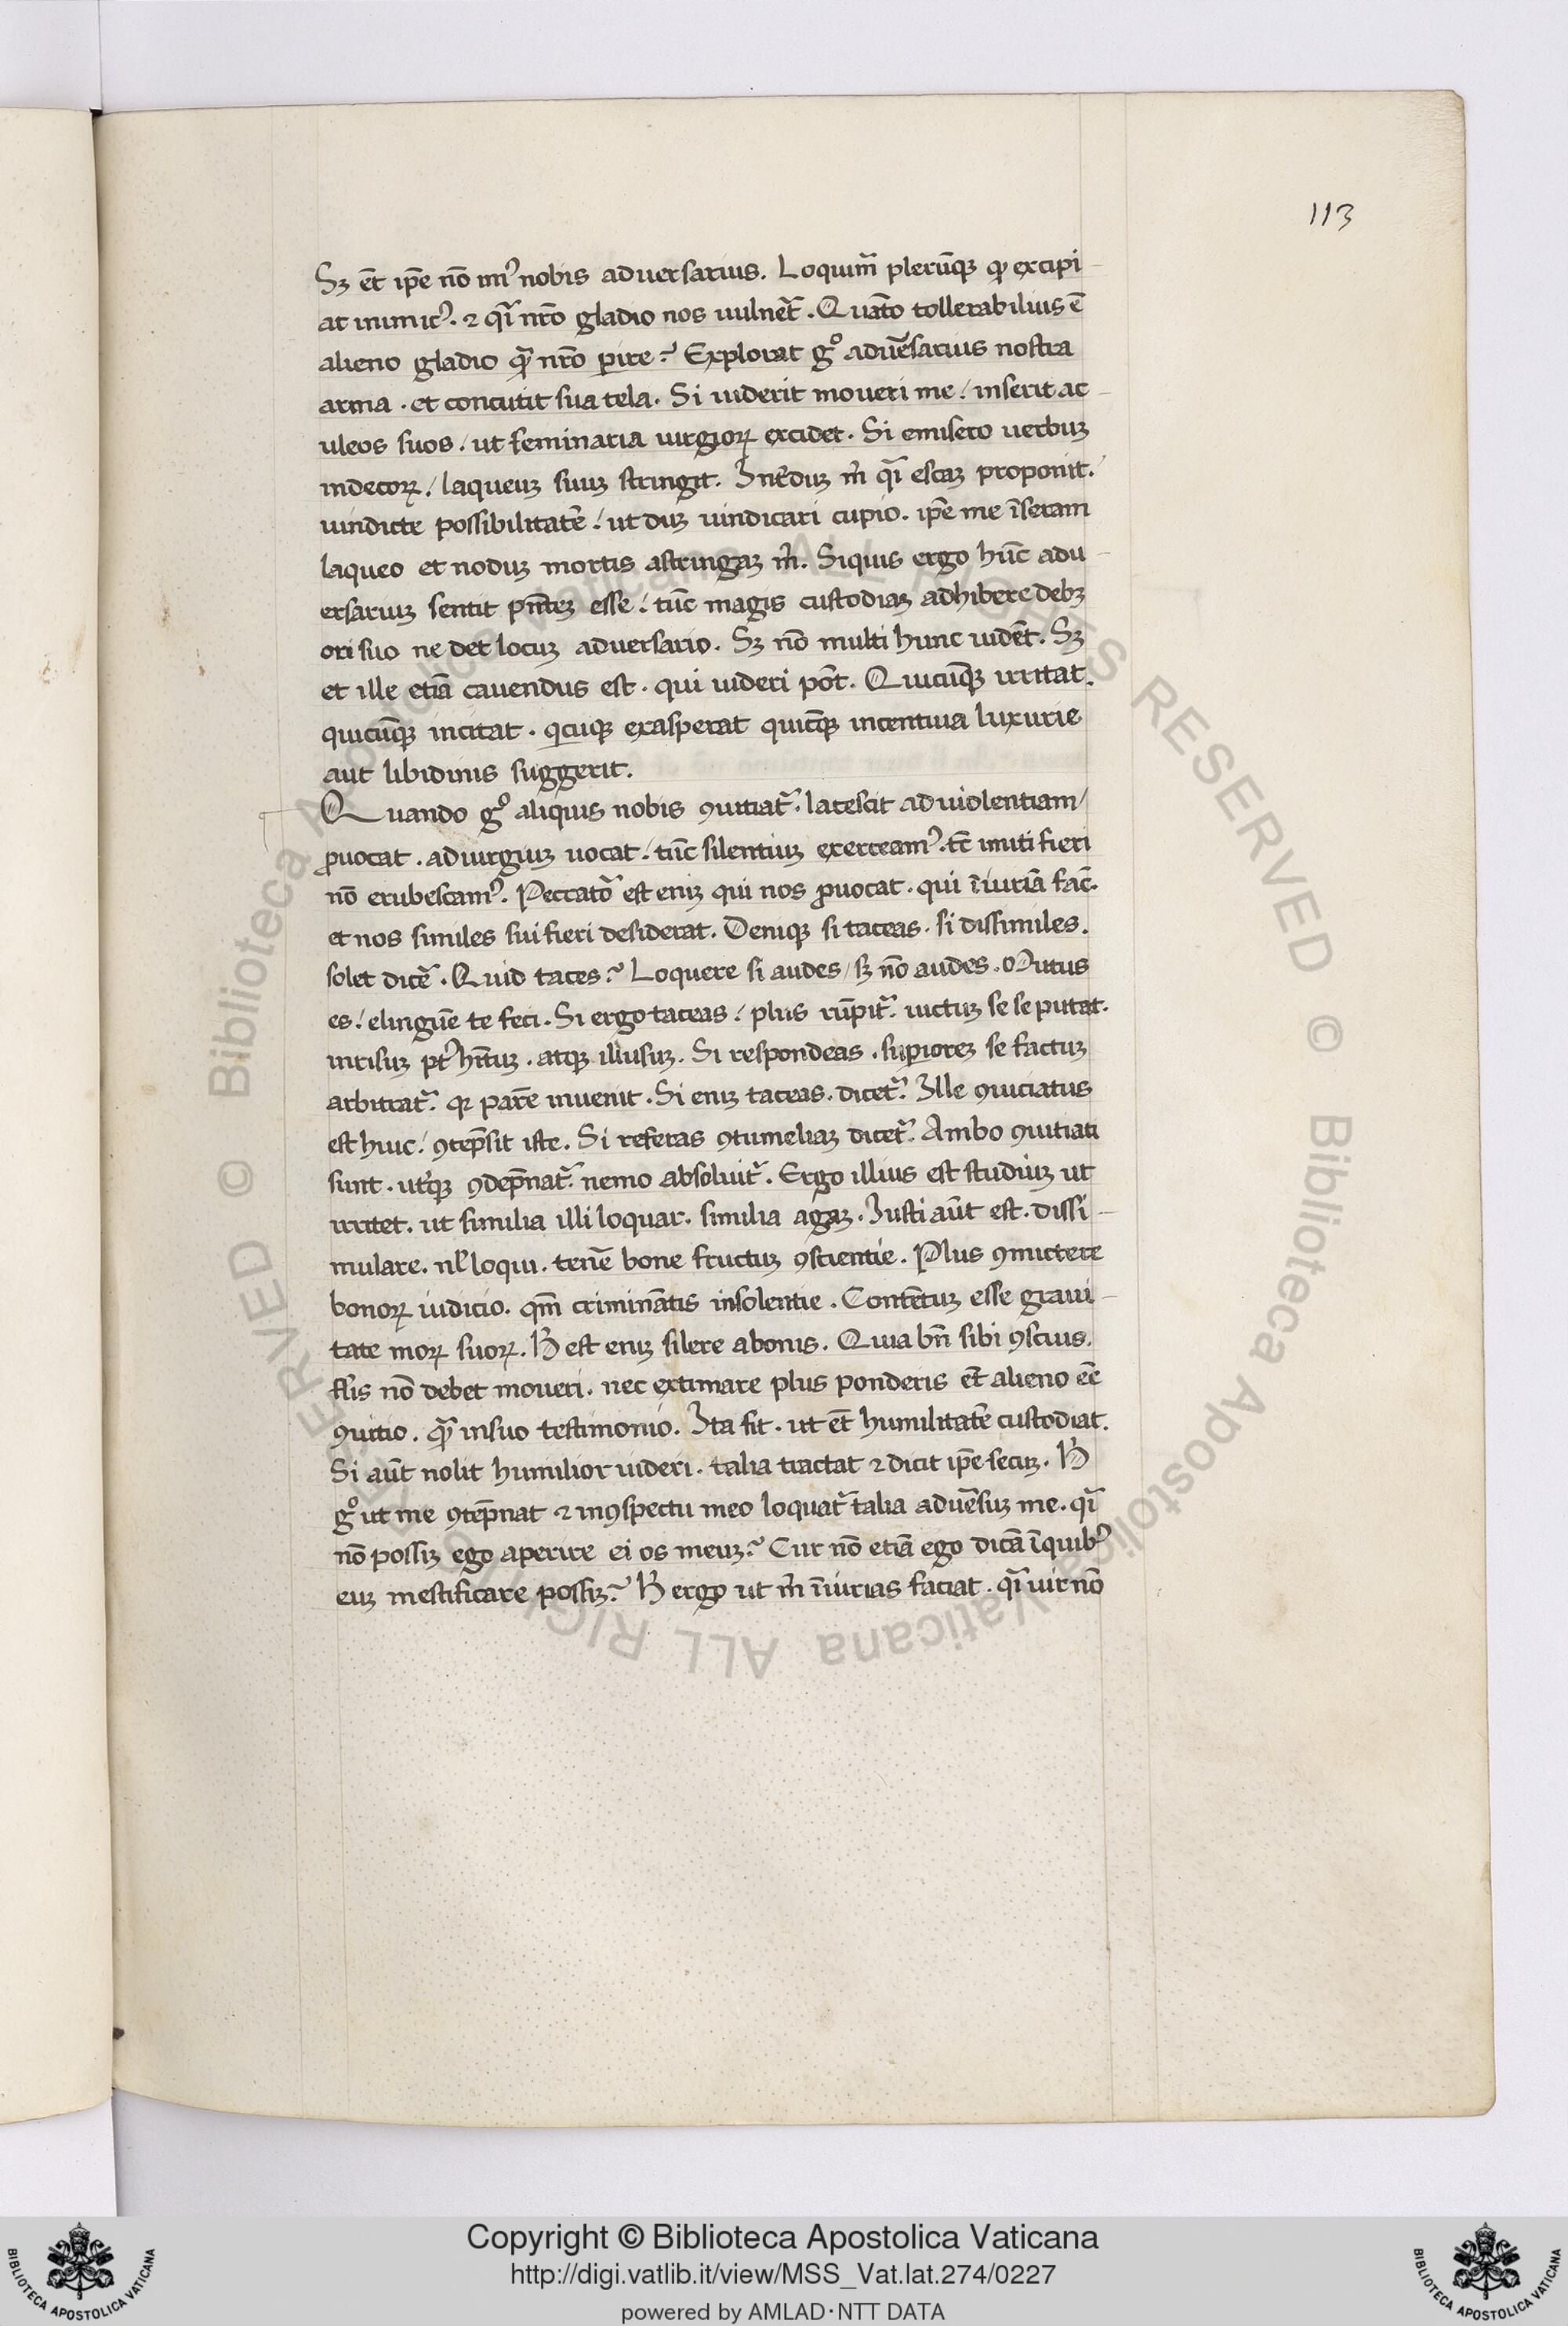 113
Sꝫ et̄ ip̄e nō im̄ꝰ nobis adversarius. Loquim̃ plerūqꝫ qꝫ excipi-
at inimicꝰ. ⁊ q̃i nr̄o gladio nos vulnet̃. Quāto tollerabilius ē
alieno gladio q̃ nr̄o ꝑire? Explorat gͦ adūersarius nostra
arma. et concutit sua tela. Si viderit moveri me/ inserit ac-
uleos suos/ ut seminaria iurgioꝝ excidet. Si emisero verbuꝫ
indecoꝝ/ laqueuꝫ suuꝫ stringit. Int̄duꝫ m̄ q̃i escaꝫ proponit/
vindicte possibilitatē/ ut duꝫ vindicari cupio. ip̄e me īseram
laqueo et noduꝫ mortis astringaꝫ m̄. Siquis ergo hūc adu-
ersariuꝫ sentit pn̄teꝫ esse/ tūc magis custodiaꝫ adhibere debꝫ
ori suo ne det locuꝫ adversario. Sꝫ nō multi hunc vidēt. Sꝫ
et ille etiā cavendus est. qui videri pōt. Quicūqꝫ irritat.
quicūqꝫ incitat. qͥcuqꝫ exasperat quicūqꝫ incentiva luxurie
aut libidinis suggerit.
Quando gͦ aliquis nobis ꝯvitiat̃. lacescit ad violentiam/
ꝓvocat. ad iurgiuꝫ vocat/ tūc silentiuꝫ exerceamꝰ. tc̄ muti fieri
nō erubescamꝰ. Peccator̃ est eniꝫ qui nos ꝓvocat. qui īiuriā fac̄.
et nos similes sui fieri desiderat. Deniqꝫ si taceas. si dissimiles.
solet dicē. Quid taces? Loquere si audes/ sꝫ nō audes. Mutus
es/ elinguē te feci. Si ergo taceas/ plus rūpit̃. victuꝫ se se putat.
irrisuꝫ pt̃ hituꝫ. atqꝫ illusuꝫ. Si respondeas. suꝑioreꝫ se factuꝫ
arbitrat̃. qꝫ parē invenit. Si eniꝫ taceas. dicet̃. Ille ꝯviciatus
est huic/ ꝯtēpsit iste. Si referas ꝯtumeliaꝫ dicet̃. Ambo ꝯvitiati
sunt. ut̃qꝫ ꝯdēpnat̃. nemo absolvit̃. Ergo illius est studiuꝫ ut
irritet. ut similia illi loquar. similia agaꝫ. Iusti aūt est. dissi-
mulare. nl̄ loqui. tenē bone fructuꝫ ꝯscientie. Plus ꝯmictere
bonoꝝ iudicio. qm̄ criminātis insolentie. Contētuꝫ esse gravi-
tate moꝝ suoꝝ. H̄ est eniꝫ silere abonis. Quia bn̄ sibi ꝯscius.
fl̄is nō debet moveri. nec extimare plus ponderis et̄ alieno eē
ꝯvitio. q̃ in suo testimonio. Ita fit. ut et̄ humilitatē custodiat.
Si aūt nolit humilior videri. talia tractat ⁊ dicit ip̄e secuꝫ. H̄
gͦ ut me ꝯtēpnat ⁊ inꝯspectu meo loquat̃ talia adūersuꝫ me. q̃i
nō possiꝫ ego aperire ei os meuꝫ? Cur nō etiā ego dicā ī quibꝰ
euꝫ mestificare possiꝫ? H̄ ergo ut m̄ īiurias faciat. q̃i vir nō
Copyright © Biblioteca Apostolica Vaticana
http://digi.vatlib.it/view/MSS_Vat.lat.274/0227
powered by AMLAD·NTT DATA
BIBLIOTECA APOSTOLICA VATICANA
BIBLIOTECA APOSTOLICA VATICANA
© Biblioteca Apostolica Vaticana ALL RIGHTS RESERVED © Biblioteca Apostolica Vaticana ALL RIGHTS RESERVED